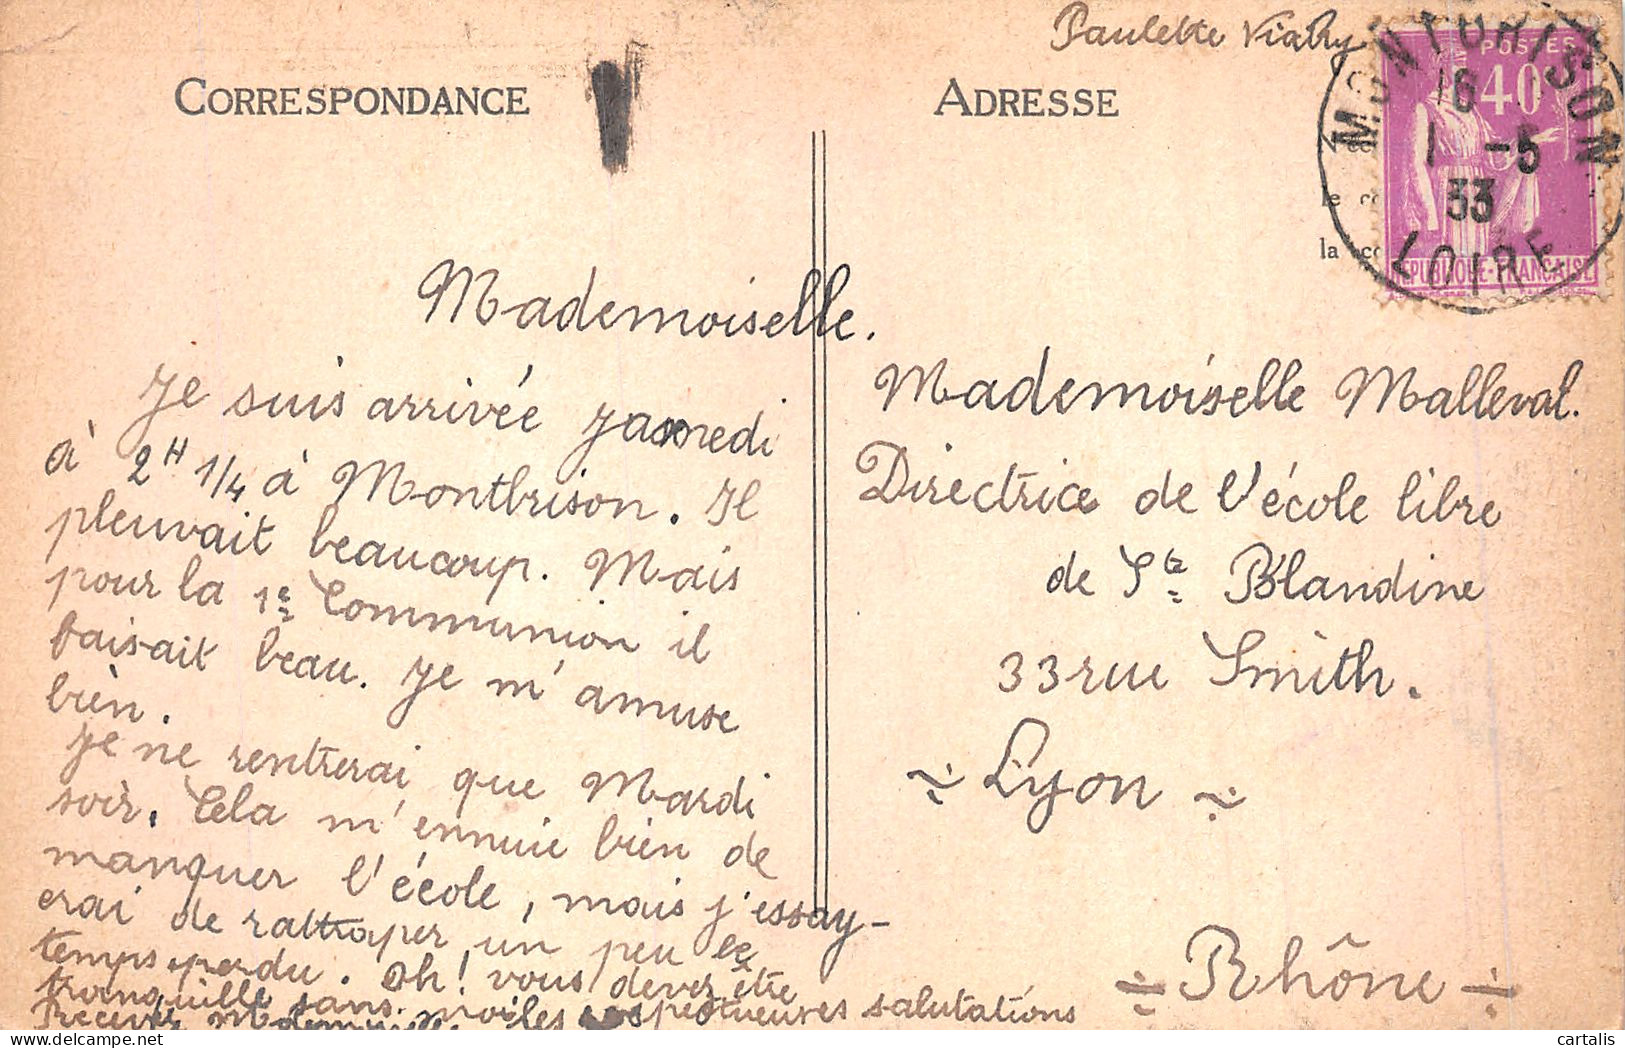 Paulette
CORRESPONDANCE
ADRESSE
MONTBRISON
16
1 -5
33
LOIRE
POSTES
40c
REPUBLIQUE-FRANCAISE
le co
la co
Mademoiselle.
Je suis arrivée samedi
à 2H 1/4 à Montbrison. Il
pleuvait beaucoup. Mais
pour la 1e Communion il
faisait beau. Je m'amuse
bien.
Je ne rentrerai que Mardi
soir. Cela m'ennuie bien de
manquer l'école, mais j'essay-
erai de rattraper un peu le
temps perdu. Oh! vous devez être
tranquille sans moi
Recevez Mademoiselle les respectueuses salutations
Mademoiselle Malleval.
Directrice de l'école libre
de Ste Blandine
33 rue Smith.
Lyon
Rhône
cartalis
© delcampe.net